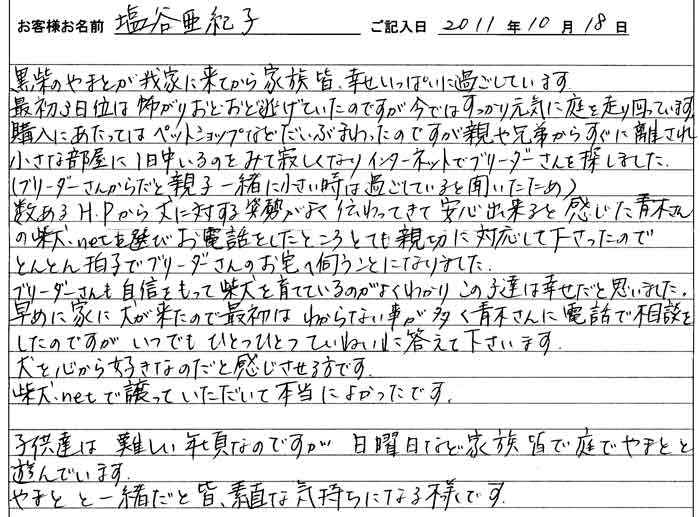 お客様お名前 塩谷亜紀子 ご記入日 2011 年 10 月 18 日
黒柴のやまとが我家に来てから家族皆、幸せいっぱいに過ごしています。
最初3日位は怖がりおどおど逃げていたのですが今ではすっかり元気に庭を走り回っています。
購入にあたってはペットショップなどだいぶまわったのですが親や兄弟からすぐに離され
小さな部屋に1日中いるのをみて寂しくなりインターネットでブリーダーさんを探しました。
(ブリーダーさんからだと親子一緒に小さい時は過ごしていると聞いたため)
数あるH.Pから犬に対する姿勢がよく伝わってきて安心出来ると感じた青木さん
の柴犬.netを選びお電話をしたところとても親切に対応して下さったので
とんとん拍子でブリーダーさんのお宅へ伺うことになりました。
ブリーダーさんも自信をもって柴犬を育てているのがよくわかりこの子達は幸せだと思いました。
早めに家に犬が来たので最初はわからない事が多く青木さんに電話で相談を
したのですがいつでもひとつひとつていねいに答えて下さいます。
犬を心から好きなのだと感じさせる方です。
柴犬.netで譲っていただいて本当によかったです。
子供達は難しい年頃なのですが日曜日など家族皆で庭でやまとと
遊んでいます。
やまとと一緒だと皆、素直な気持ちになる様です。